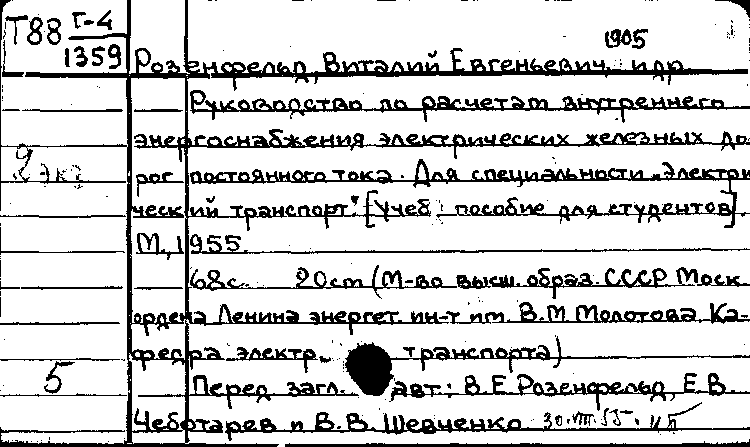 Т88 Г-4
1359
1905
Розенфельд, Виталий Евгеньевич, и др.
Руководство по расчетам внутреннего
энергоснабжения электрических железных до
рог постоянного тока. Для специальности „Электри
ческий транспорт". [Учеб. пособие для студентов].
М., 1955.
2 экз
68с. 20cm (М-во высш. образ. СССР Моск.
ордена Ленина энергет. ин-т им. В.М Молотова Ка-
федра электр. транспорта)
5
Перед загл. авт.: В.Е.Розенфельд, Е.В.
Чеботарев и В.В. Шевченко 30.VIII.55.